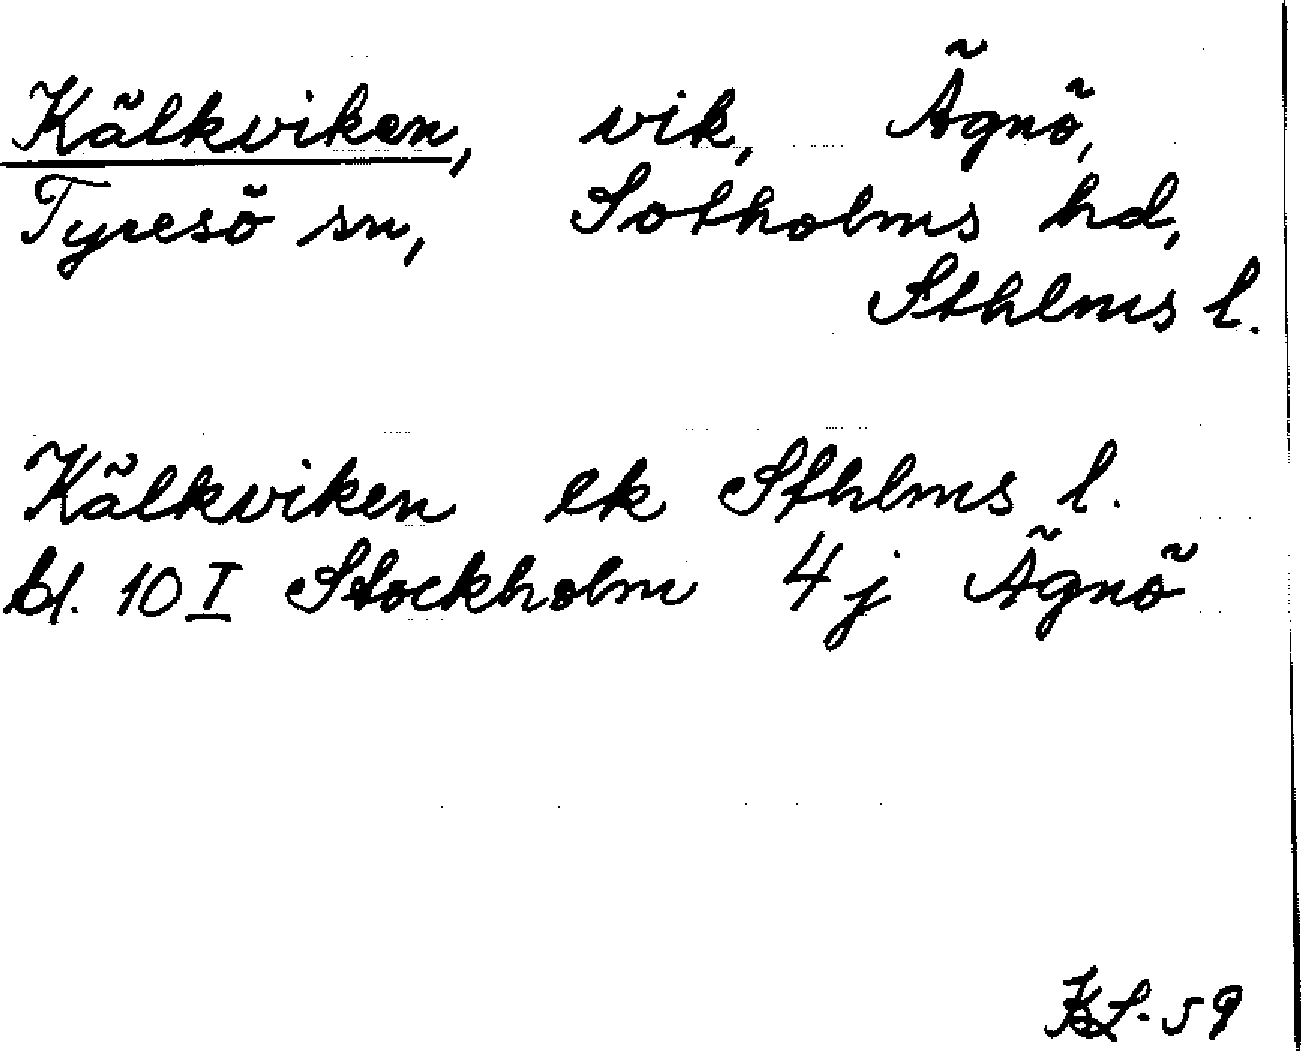 Kälkviken, vik, Ägnö,
Tyresö sn, Sotholms hd,
Sthlms l.
Kälkviken ek Sthlms l.
bl. 10 I Stockholm 4 j Ägnö
KL-59